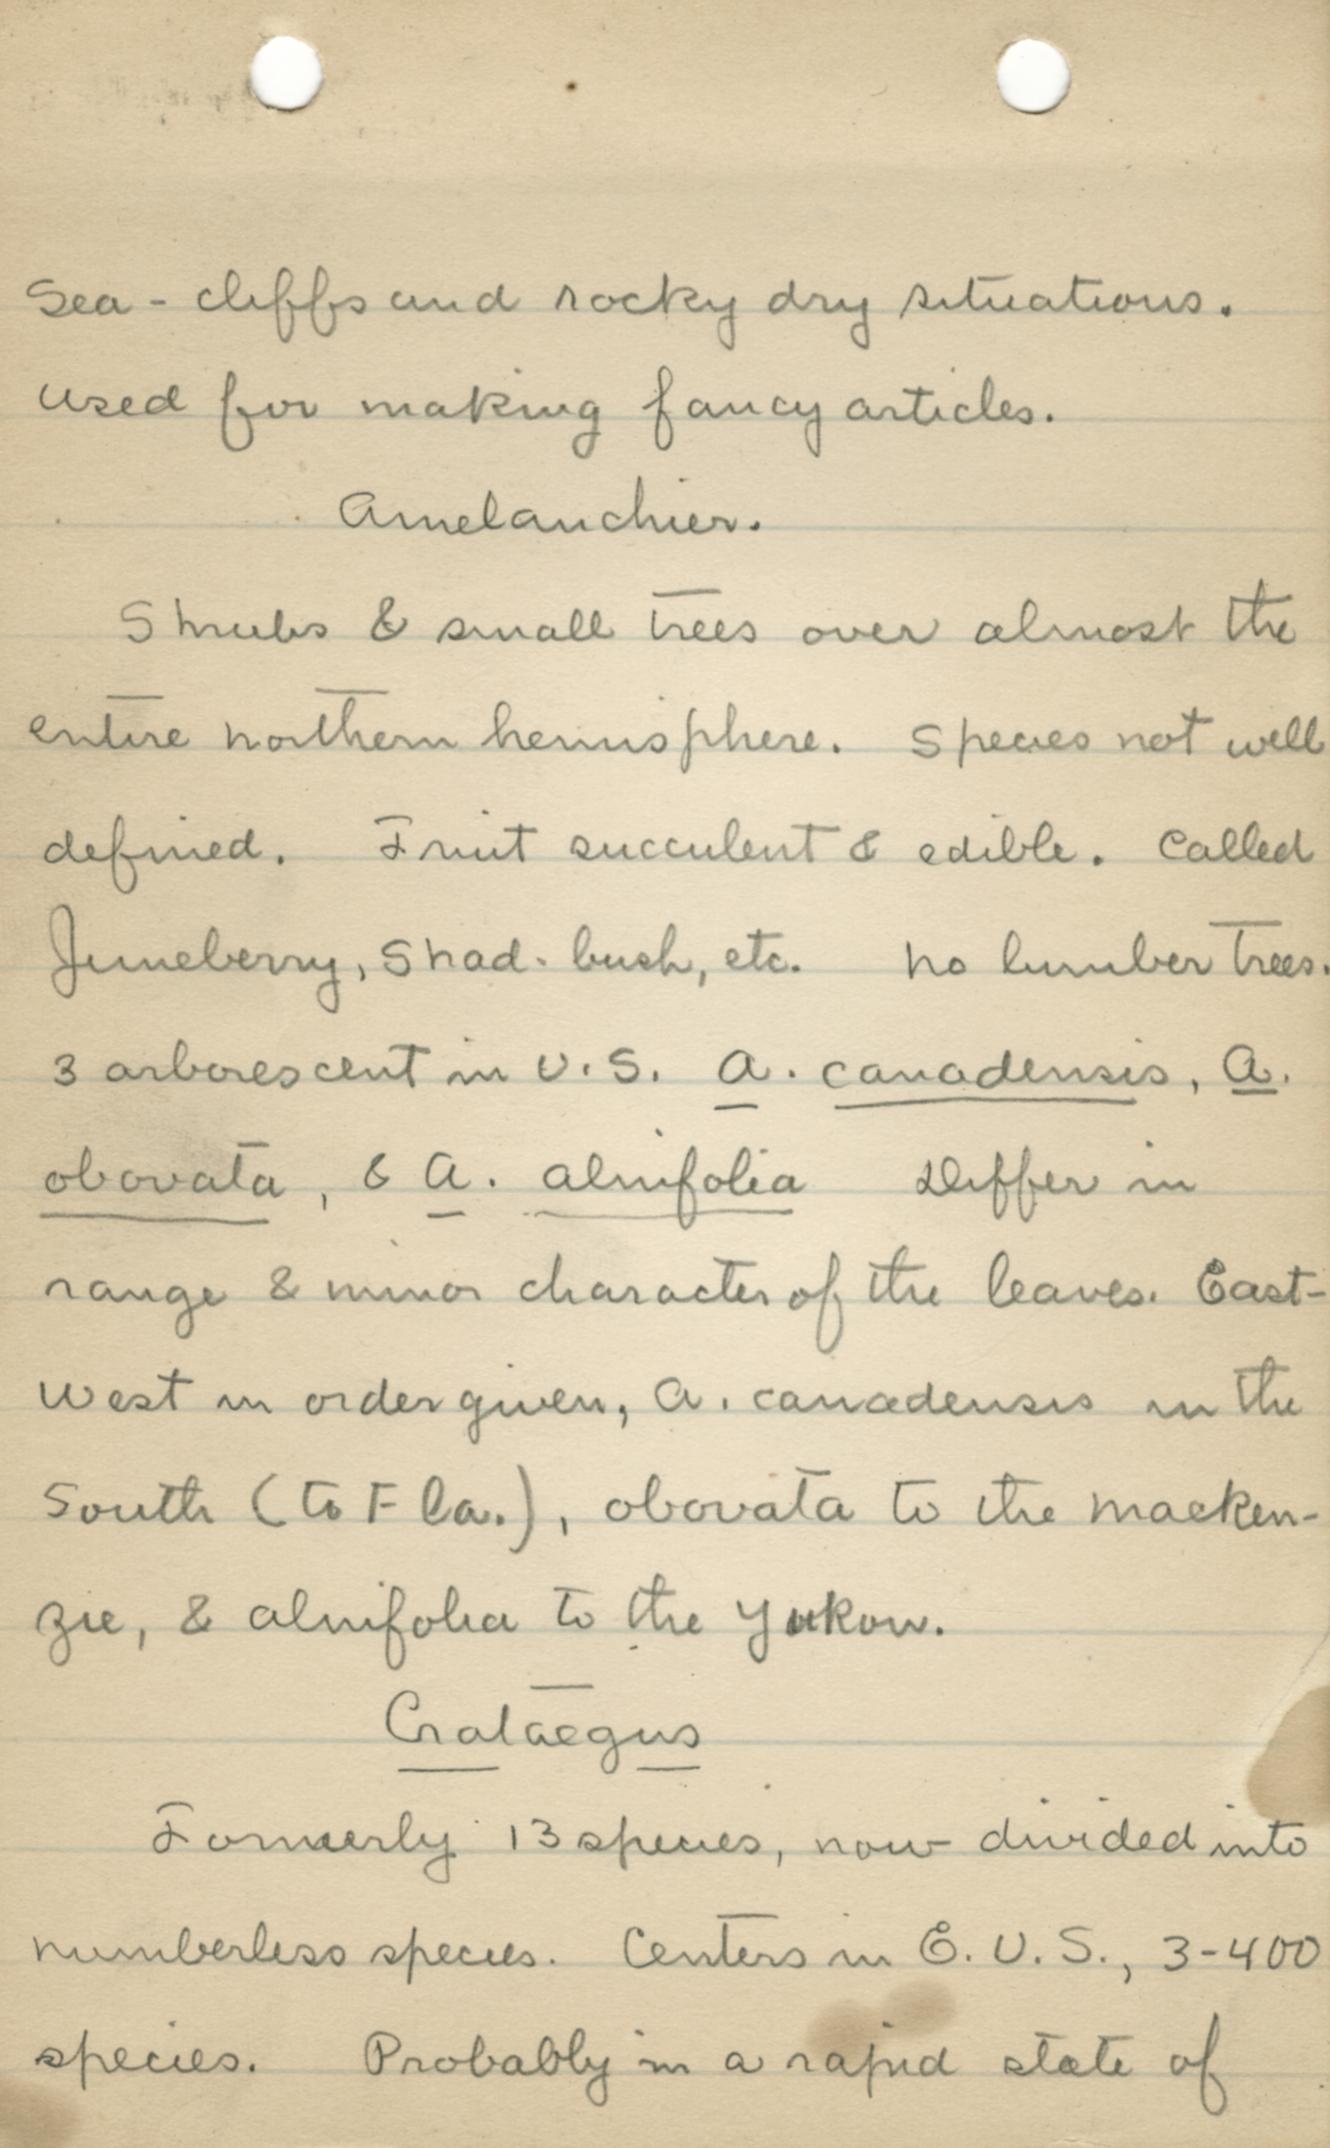 Sea-cliffs and rocky dry situations.
used for making fancy articles.
Amelanchier.
Shrubs & small trees over almost the
entire northern hemisphere. Species not well
defined. Fruit succulent & edible. Called
Juneberry, Shad-bush, etc. No lumber trees.
3 arborescent in U.S. A. canadensis, A.
obovata, & A. alnifolia Differ in
range & minor character of the leaves. East-
West in order given, A. canadensis in the
South (to Fla.), obovata to the Macken-
zie, & alnifolia to the Yukon.
Crataegus
Formerly 13 species, now divided into
numberless species. Centers in E. U. S., 3-400
species. Probably in a rapid state of